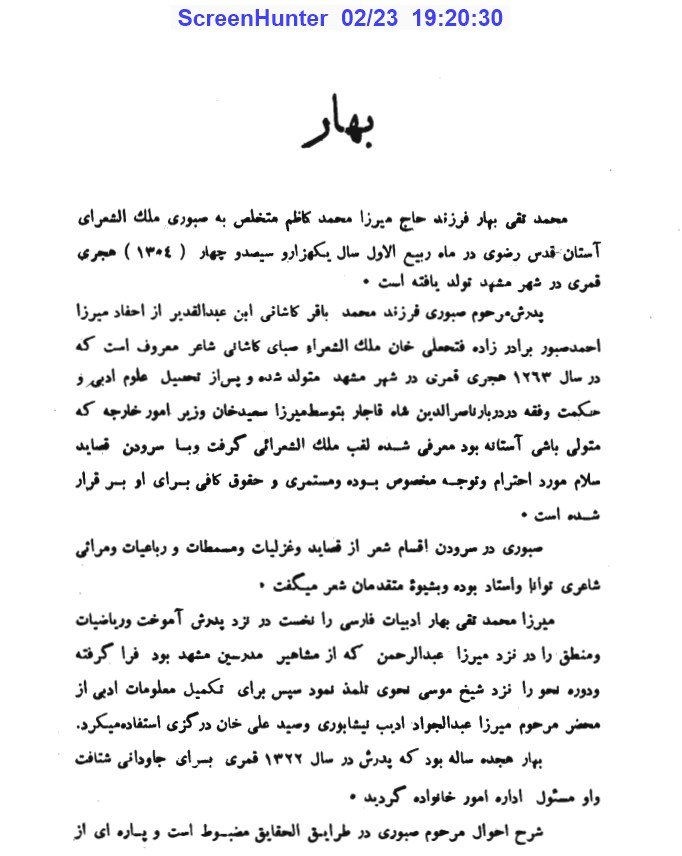 ScreenHunter 02/23 19:20:30
بهار
محمد تقی بهار فرزند حاج میرزا محمد کاظم متخلص به صبوری ملك الشعرای
آستان قدس رضوی در ماه ربیع الاول سال یکهزارو سیصدو چهار ( ۱۳۰٤ ) هجری
قمری در شهر مشهد تولد یافته است ۰
پدرش‌مرحوم صبوری فرزند محمد باقر کاشانی ابن عبدالقدیر از احفاد میرزا
احمدصبور برادر زاده فتحعلی خان ملك الشعراء صبای کاشانی شاعر معروف است که
در سال ۱۲٦۳ هجری قمری در شهر مشهد متولد شده و پس‌از تحصیل علوم ادبی و
حکمت وفقه دردربارناصرالدین شاه قاجار بتوسط‌میرزا سعیدخان وزیر امور خارجه که
متولی باشی آستانه بود معرفی شــده لقب ملك الشعرائی گرفت وبــا سرودن قصاید
سلام مورد احترام وتوجــه مخصوص بــوده ومستمری و حقوق کافی بــرای او بــر قرار
شــده است ۰
صبوری در سرودن اقسام شعر از قصاید وغزلیات ومسمطات و رباعیات ومراثی
شاعری توانا واستاد بوده وبشیوۀ متقدمان شعر میگفت ۰
میرزا محمد تقی بهار ادبیات فارسی را نخست در نزد پدرش آموخت وریاضیات
ومنطق را در نزد میرزا عبدالرحمن که از مشاهیر مدرسین مشهد بود فرا گرفته
ودوره نحو را نزد شیخ موسی نحوی تلمذ نمود سپس برای تکمیل معلومات ادبی از
محضر مرحوم میرزا عبدالجواد ادیب نیشابوری وصید علی خان درگزی استفاده‌میکرد.
بهار هجده ساله بود که پدرش در سال ۱۳۲۲ قمری بسرای جاودانی شتافت
واو مسئول اداره امور خانواده گردید ۰
شرح احوال مرحوم صبوری در طرایــق الحقایق مضبــوط است و پــاره ای از